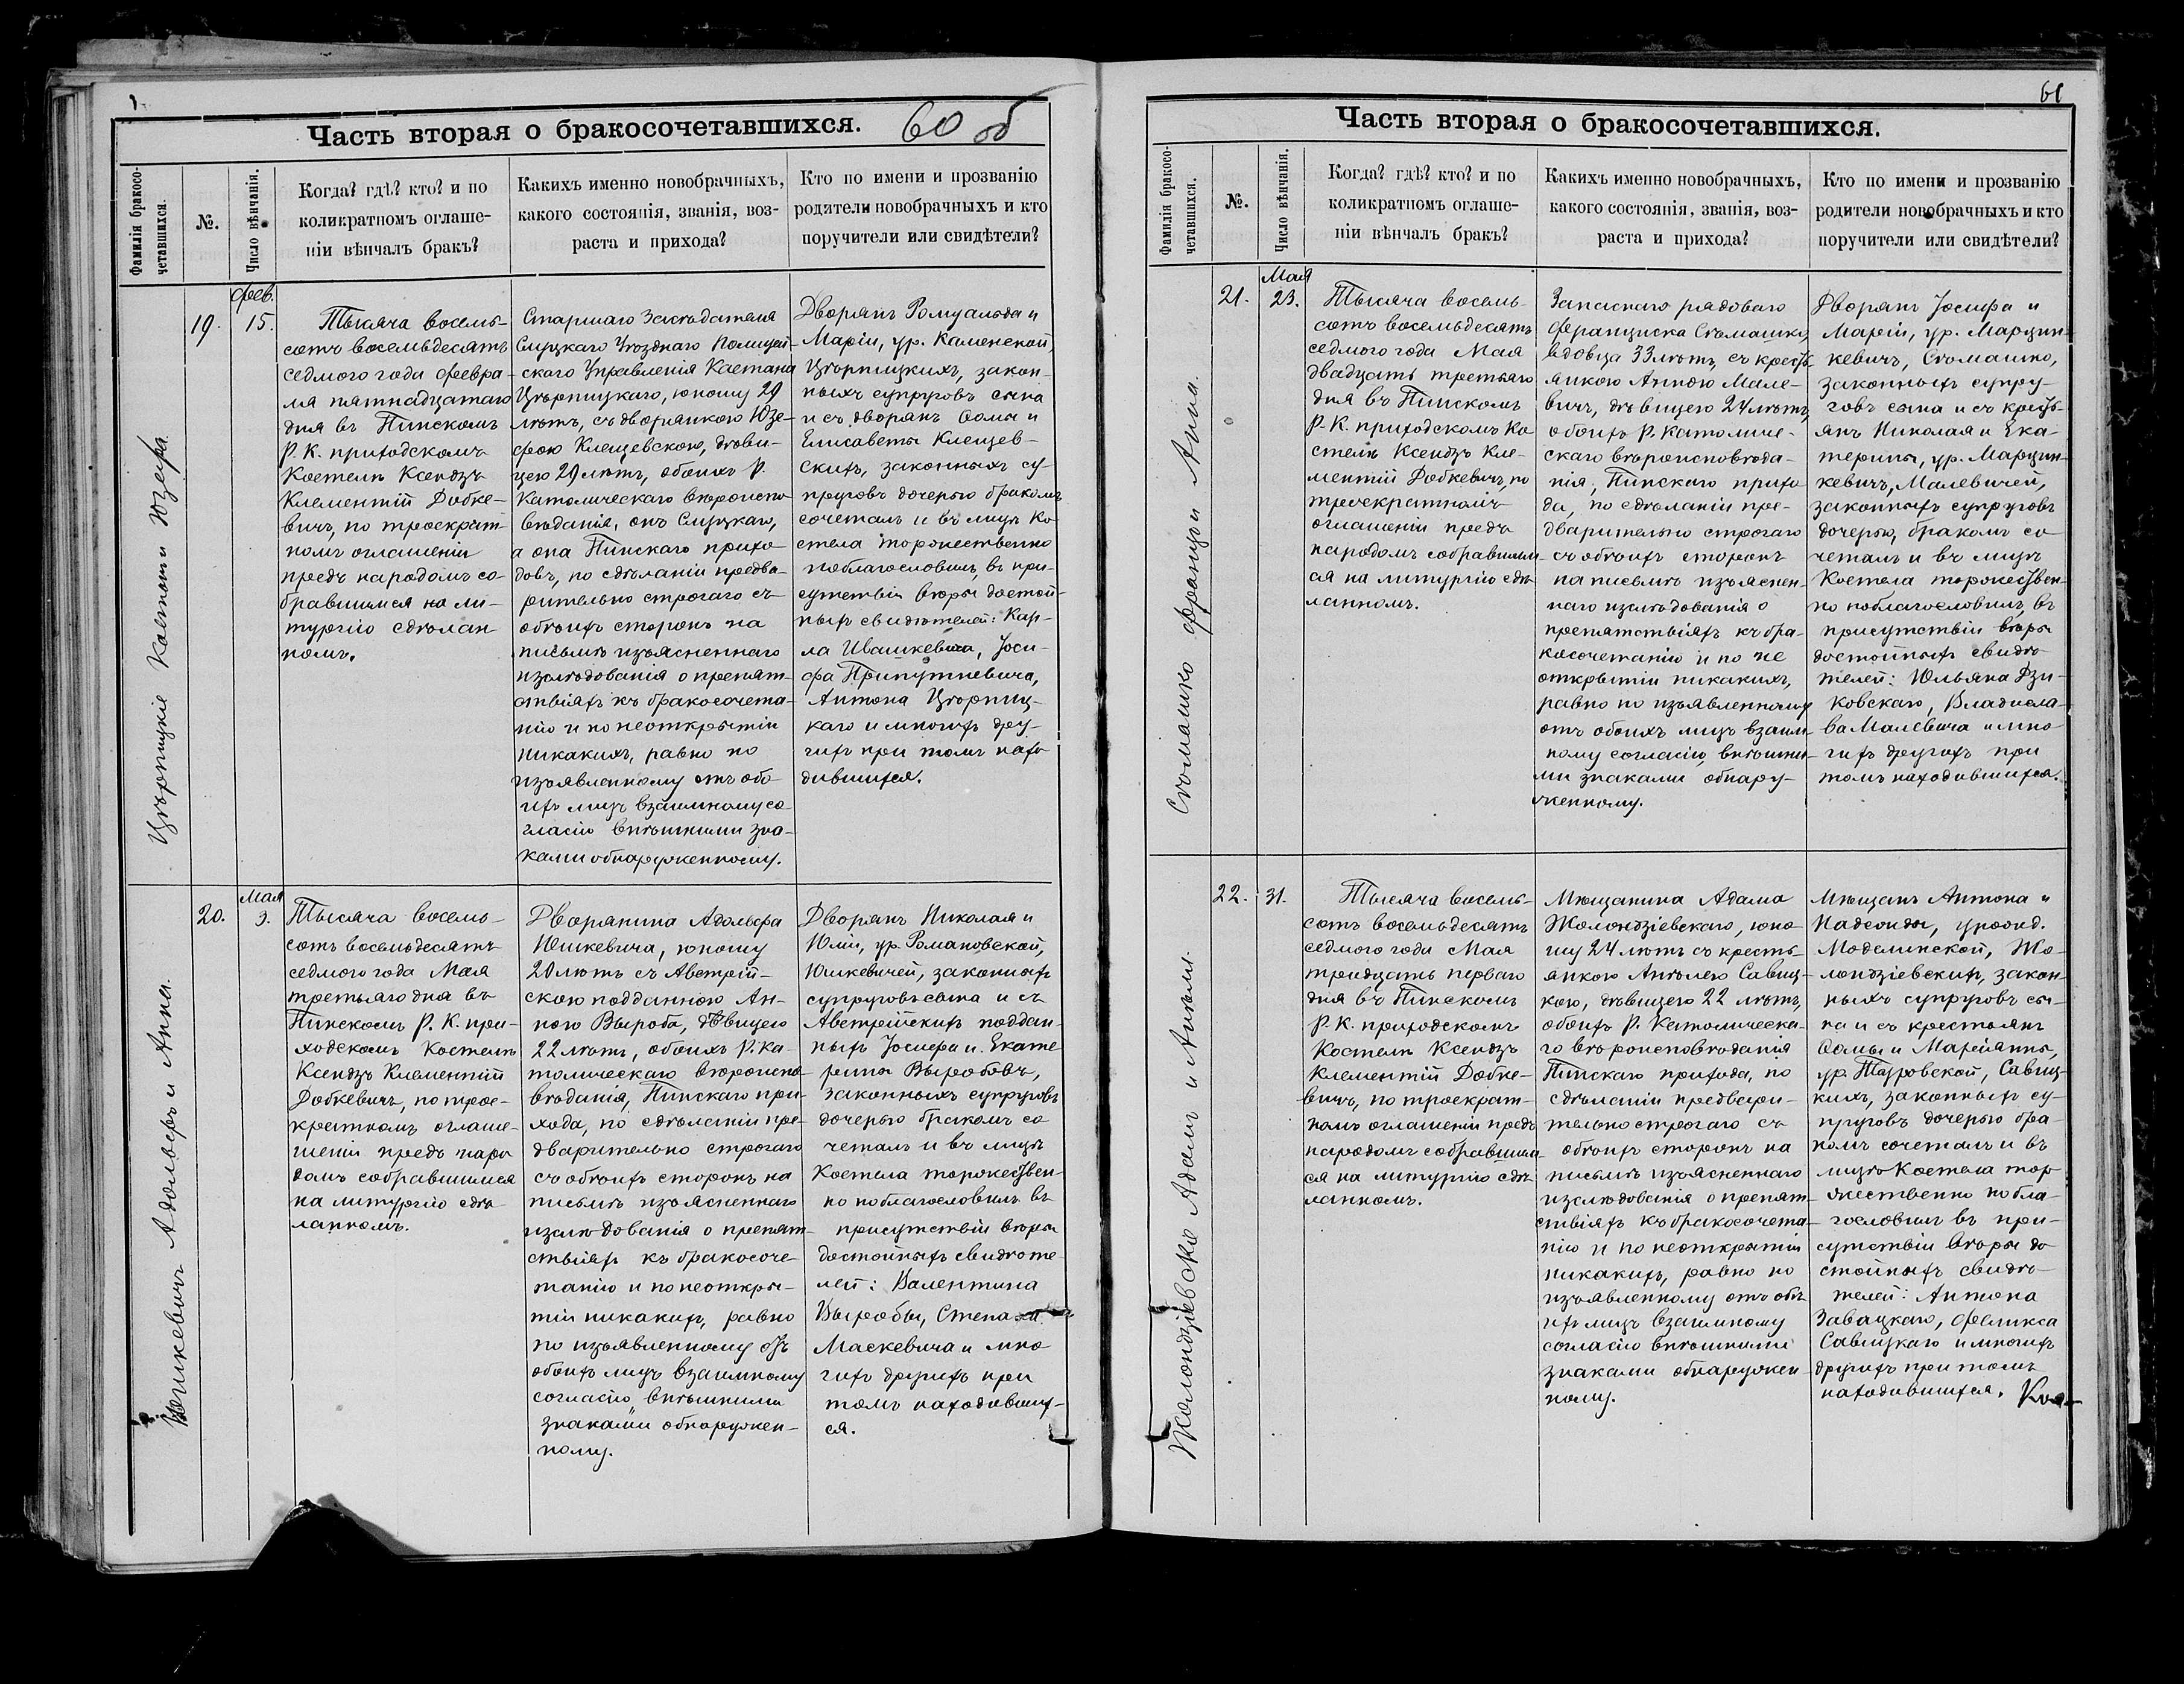 Часть вторая о бракосочетавшихся.
60 об
Фамилія бракосо-
четавшихся.
№.
Число вѣнчанія.
Когда? гдѣ? кто? и по
коликратномъ оглаше-
ніи вѣнчалъ бракъ?
Какихъ именно новобрачныхъ,
какого состоянія, званія, воз-
раста и прихода?
Кто по имени и прозванію
родители новобрачныхъ и кто
поручители или свидѣтели?
Каетанъ и Юзефа.
19.
Фев.
15.
Тысяча восемь-
сотъ восемьдесятъ
седмого года Февра-
ля пятнадцатаго
дня въ Пинскомъ
Р. К. приходскомъ
Костелѣ Ксендзъ
Климентій Добке-
вичъ, по троекрат-
номъ оглашеніи
предъ народомъ со-
бравшимся на ли-
тургію сдѣлан
номъ.
Старшаго Засѣдателя
Слуцкаго Уѣзднаго Полицей-
скаго Управленія Каетана
юному 29
лѣтъ, съ дворянкою Юзе-
фою Клещевскою, дѣви-
цею 29 лѣтъ, обоихъ Р.
Католическаго вѣроиспо-
вѣданія, онъ Слуцкаго,
а она Пинскаго прихо-
довъ, по сдѣланіи предва-
рительно строгаго съ
обѣихъ сторонъ на
письмѣ изъясненнаго
изслѣдованія о препят-
ствіяхъ къ бракосочета-
нію и по неоткрытіи
никакихъ, равно по
изъявленному отъ обо-
ихъ лицъ взаимному со
гласію внѣшними зна-
ками обнаруженному.
Дворянъ Ромуальда и
Маріи, ур. Каменской,
закон-
ныхъ супруговъ сына
и съ дворянъ Ѳомы и
Елисаветы Клещев-
скихъ, законныхъ су-
пруговъ дочерью бракомъ
сочеталъ и въ лицѣ Ко
стела торжественно
поблагословилъ, въ при-
сутствіи вѣры достой-
ныхъ свидѣтелей: Кар-
ла Ивашкевича, Іоси-
фа Припутневича,
Антона
каго и многихъ дру-
гихъ при томъ нахо
дившихся.
Юшкевичъ Адольфъ и Анна.
20.
Мая
3.
Тысяча восемь-
сотъ восемьдесятъ
седмого года Мая
третьяго дня въ
Пинскомъ Р. К. при-
ходскомъ Костелѣ
Ксендзъ Климентій
Добкевичъ, по трое-
кратномъ оглаше-
шеніи предъ наро
домъ собравшимся
на литургію сдѣ
ланномъ.
Дворянина Адольфа
Юшкевича, юношу
20 лѣтъ съ Австрій-
скою подданною Ан-
ною Выроба, дѣвицею
22 лѣтъ, обоихъ Р. Ка-
толическаго вѣроиспо-
вѣданія, Пинскаго при-
хода, по сдѣланіи пре-
дварительно строгаго
съ обѣихъ сторонъ на
письмѣ изъясненнаго
изслѣдованія о препят-
ствіяхъ къ бракосоче-
танію и по неоткры-
тіи никакихъ, равно
по изъявленному отъ
обоихъ лицъ взаимному
согласію, внѣшними
знаками обнаружен-
ному.
Дворянъ Николая и
Юліи, ур. Романовской,
Юшкевичей, законныхъ
супруговъ сына и съ
Австрійскихъ поддан-
ныхъ Іосифа и Екате
рины Выробовъ,
законныхъ супруговъ
дочерью бракомъ со
четалъ и въ лицѣ
Костела торжествен-
но поблагословилъ въ
присутствіи вѣры
достойныхъ свидѣте-
лей: Валентина
Выробы, Степана
Маскевича и мно
гихъ другихъ при
томъ находивших-
ся.
61
Часть вторая о бракосочетавшихся.
Фамилія бракосо-
четавшихся.
№.
Число вѣнчанія.
Когда? гдѣ? кто? и по
коликратномъ оглаше-
ніи вѣнчалъ бракъ?
Какихъ именно новобрачныхъ,
какого состоянія, званія, воз-
раста и прихода?
Кто по имени и прозванію
родители новобрачныхъ и кто
поручители или свидѣтели?
Сѣмашко Францъ и Анна.
21.
Мая
23.
Тысяча восемь-
сотъ восемьдесятъ
седмого года Мая
двадцать третьяго
дня въ Пинскомъ
Р. К. приходскомъ Ко
стелѣ Ксендзъ Кле-
ментій Добкевичъ, по
троекратномъ
оглашеніи предъ
народомъ собравшим-
ся на литургію сдѣ
ланномъ.
Запаснаго рядоваго
Француска Сѣмашко,
вдовца 33 лѣтъ, съ кресть-
янкою Анною Мале-
вичъ, дѣвицею 24 лѣтъ,
обоихъ Р. Католиче-
скаго вѣроисповѣда-
нія, Пинскаго прихо
да, по сдѣланіи пре-
дварительно строгаго
съ обѣихъ сторонъ
на письмѣ изъяснен-
наго изслѣдованія о
препятствіяхъ къ бра-
косочетанію и по не
открытіи никакихъ,
равно по изъявленному
отъ обоихъ лицъ взаим-
ному согласію, внѣшни-
ми знаками обнару-
женному.
Дворянъ Іосифа и
Маріи, ур. Марцин-
кевичъ, Сѣмашко,
законныхъ супру-
говъ сына и съ кресть-
янъ Николая и Ека-
терины, ур. Марцин-
кевичъ, Малевичей,
законныхъ супруговъ
дочерью, бракомъ со
четалъ и въ лицѣ
Костела торжествен-
но поблагословилъ, въ
присутствіи вѣры
достойныхъ свидѣ-
телей: Юльяна Дзи-
ковскаго, Владисла-
ва Малевича и мно-
гихъ другихъ при
томъ находившихся.
Жолондзіевскіе Адамъ и Анѣля.
22.
31.
Тысяча восемь-
сотъ восемьдесятъ
седмого года Мая
тридцать перваго
дня въ Пинскомъ
Р. К. приходскомъ
Костелѣ Ксендзъ
Климентій Добке-
вичъ, по троекрат-
номъ оглашеніи предъ
народомъ собравшим-
ся на литургію сдѣ
ланномъ.
Мѣщанина Адама
Жолондзіевскаго, юно-
шу 24 лѣтъ съ кресть-
янкою Анѣлею Савиц-
кою, дѣвицею 22 лѣтъ,
обоихъ Р. Католическа-
го вѣроисповѣданія
Пинскаго прихода, по
сдѣланіи предвари-
тельно строгаго съ
обѣихъ сторонъ на
письмѣ изъясненнаго
изслѣдованія о препят-
ствіяхъ къ бракосочета-
нію и по неоткрытіи
никакихъ, равно по
изъявленному отъ обо-
ихъ лицъ взаимному
согласію внѣшними
знаками обнаружен
ному.
Мѣщанъ Антона и
урожд.
Моделинской, Жо-
лондзіевскихъ, закон-
ныхъ супруговъ сы-
на и съ крестьянъ
Ѳомы и Маріанны,
ур. Туровской, Савиц-
кихъ, законныхъ су-
пруговъ дочерью бра-
комъ сочеталъ и въ
лицѣ Костела тор-
жественно побла-
гословилъ въ при-
сутствіи вѣры до
стойныхъ свидѣ-
телей: Антона
Завацкаго, Феликса
Савицкаго и многихъ
другихъ при томъ
находившихся.